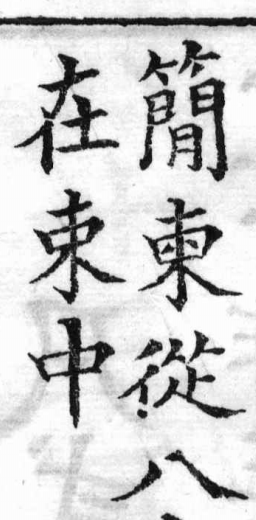 簡柬從八
在束中